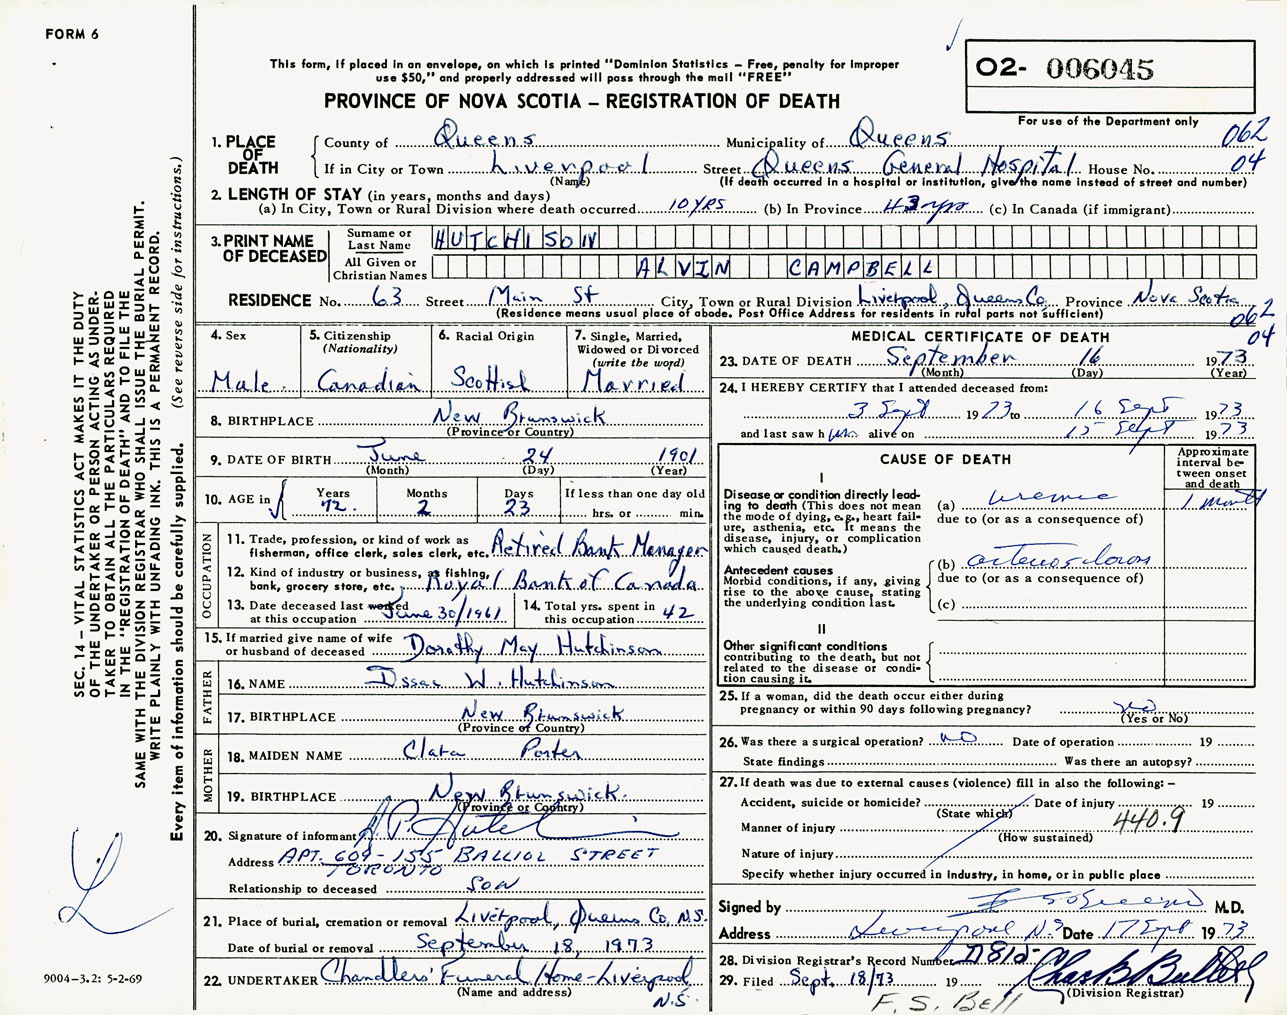 FORM 6
This form, if placed in an envelope, on which is printed "Dominion Statistics – Free, penalty for improper
use $50," and properly addressed will pass through the mail "FREE"
O2- 006045
PROVINCE OF NOVA SCOTIA – REGISTRATION OF DEATH
For use of the Department only
1. PLACE OF DEATH
County of Queens Municipality of Queens 062
If in City or Town Liverpool Street Queens General Hospital House No. 04
(Name) (If death occurred in a hospital or institution, give the name instead of street and number)
2. LENGTH OF STAY (in years, months and days)
(a) In City, Town or Rural Division where death occurred 10 YRS (b) In Province 43 yrs (c) In Canada (if immigrant)
3. PRINT NAME OF DECEASED
Surname or Last Name HUTCHISON
All Given or Christian Names ALVIN CAMPBELL
RESIDENCE No. 63 Street Main St City, Town or Rural Division Liverpool, Queens Co. Province Nova Scotia
(Residence means usual place of abode. Post Office Address for residents in rural parts not sufficient) 062
04
4. Sex
Male
5. Citizenship
(Nationality)
Canadian
6. Racial Origin
Scottish
7. Single, Married,
Widowed or Divorced
(write the word)
Married
8. BIRTHPLACE New Brunswick
(Province or Country)
9. DATE OF BIRTH June 24 1901
(Month) (Day) (Year)
10. AGE in
Years 72
Months 2
Days 23
If less than one day old
hrs. or min.
OCCUPATION
11. Trade, profession, or kind of work as
fisherman, office clerk, sales clerk, etc. Retired Bank Manager
12. Kind of industry or business, as fishing,
bank, grocery store, etc. Royal Bank of Canada
13. Date deceased last worked
at this occupation June 30/1961
14. Total yrs. spent in
this occupation 42
15. If married give name of wife
or husband of deceased Dorothy May Hutchinson
FATHER
16. NAME Issac W. Hutchinson
17. BIRTHPLACE New Brunswick
(Province or Country)
MOTHER
18. MAIDEN NAME Clara Porter
19. BIRTHPLACE New Brunswick.
(Province or Country)
20. Signature of informant
Address APT. 609-155 BALLIOL STREET
TORONTO
Relationship to deceased SON
21. Place of burial, cremation or removal Liverpool, Queens Co. N.S.
Date of burial or removal September 18, 1973
22. UNDERTAKER Chandlers' Funeral Home-Liverpool
(Name and address) N.S.
MEDICAL CERTIFICATE OF DEATH
23. DATE OF DEATH September 16 1973
(Month) (Day) (Year)
24. I HEREBY CERTIFY that I attended deceased from:
3 Sept 1973 to 16 Sept 1973
and last saw him alive on 15 Sept 1973
CAUSE OF DEATH
Approximate
interval be-
tween onset
and death
I
Disease or condition directly lead-
ing to death (This does not mean
the mode of dying, e.g., heart fail-
ure, asthenia, etc. It means the
disease, injury, or complication
which caused death.)
(a) uremia 1 month
due to (or as a consequence of)
Antecedent causes
Morbid conditions, if any, giving
rise to the above cause, stating
the underlying condition last.
(b)
due to (or as a consequence of)
(c)
II
Other significant conditions
contributing to the death, but not
related to the disease or condi-
tion causing it.
25. If a woman, did the death occur either during
pregnancy or within 90 days following pregnancy? no
(Yes or No)
26. Was there a surgical operation? NO Date of operation 19
State findings Was there an autopsy?
27. If death was due to external causes (violence) fill in also the following: –
Accident, suicide or homicide? Date of injury 19
(State which)
Manner of injury 440.9
(How sustained)
Nature of injury
Specify whether injury occurred in industry, in home, or in public place
Signed by M.D.
Address Liverpool N.S Date 17 Sept 1973
28. Division Registrar's Record Number
29. Filed Sept. 18/73 19
(Division Registrar)
F. S. Bell
SEC. 14 – VITAL STATISTICS ACT MAKES IT THE DUTY
OF THE UNDERTAKER OR PERSON ACTING AS UNDER-
TAKER TO OBTAIN ALL THE PARTICULARS REQUIRED
IN THE "REGISTRATION OF DEATH" AND TO FILE THE
SAME WITH THE DIVISION REGISTRAR WHO SHALL ISSUE THE BURIAL PERMIT.
WRITE PLAINLY WITH UNFADING INK. THIS IS A PERMANENT RECORD.
Every item of information should be carefully supplied. (See reverse side for instructions.)
9004-3.2: 5-2-69